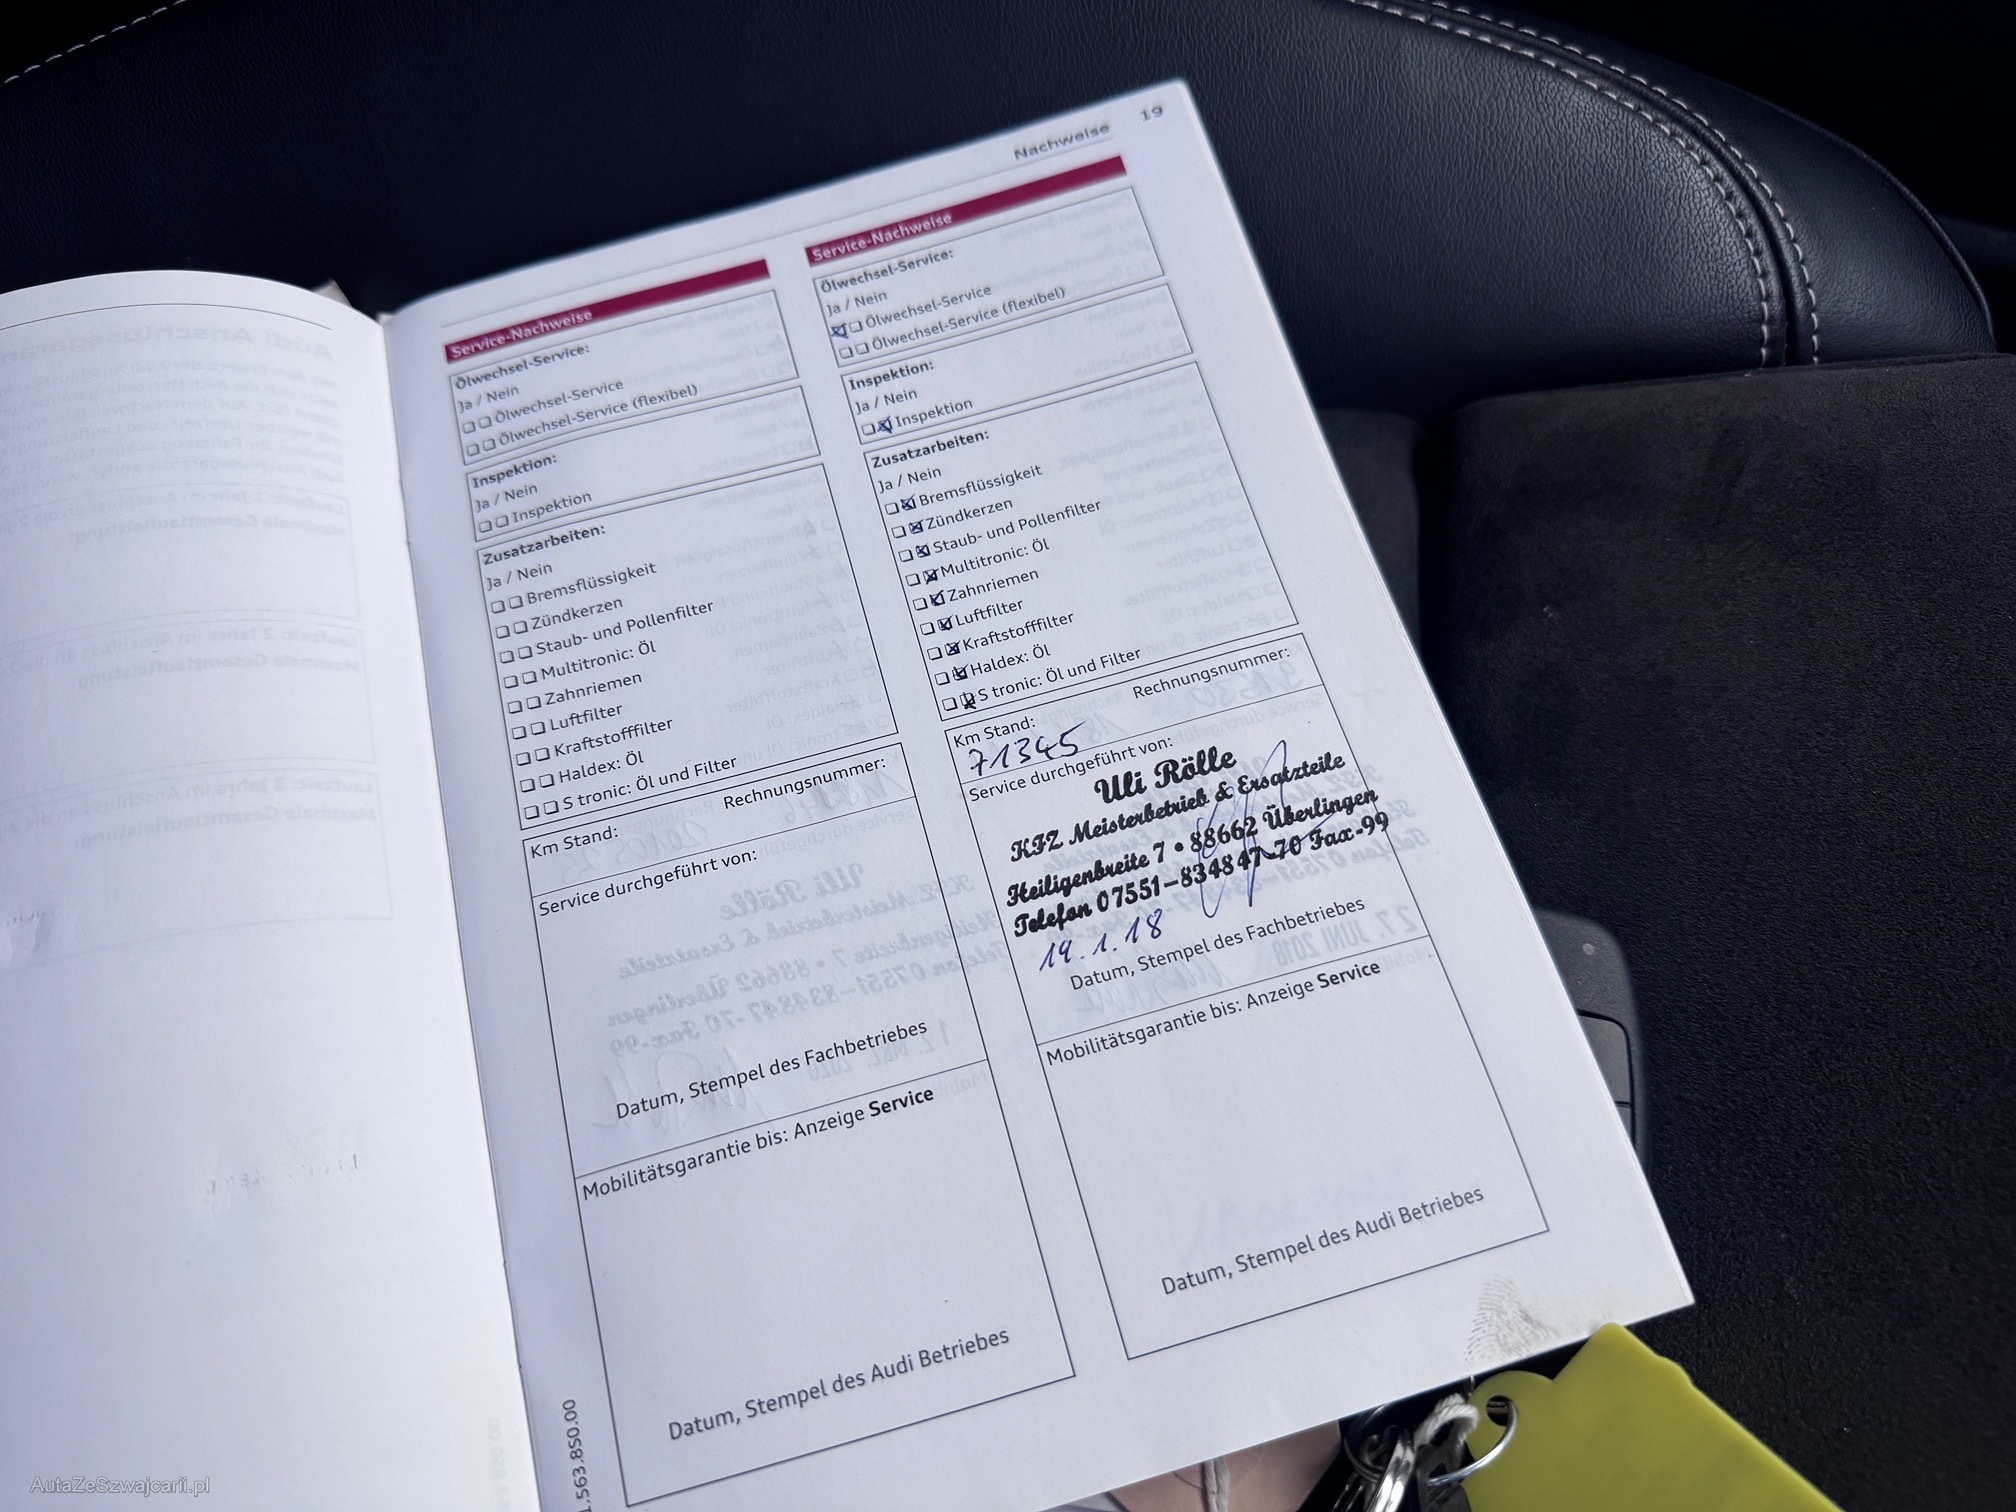 19
Nachweise
Service-Nachweise
Ölwechsel-Service:
Ja / Nein
Ölwechsel-Service
Ölwechsel-Service (flexibel)
Inspektion:
Ja / Nein
Inspektion
Zusatzarbeiten:
Ja / Nein
Bremsflüssigkeit
Zündkerzen
Staub- und Pollenfilter
Multitronic: Öl
Zahnriemen
Luftfilter
Kraftstofffilter
Haldex: Öl
S tronic: Öl und Filter
Km Stand:
Rechnungsnummer:
Service durchgeführt von:
Datum, Stempel des Fachbetriebes
Mobilitätsgarantie bis: Anzeige Service
Datum, Stempel des Audi Betriebes
Service-Nachweise
Ölwechsel-Service:
Ja / Nein
Ölwechsel-Service
Ölwechsel-Service (flexibel)
Inspektion:
Ja / Nein
Inspektion
Zusatzarbeiten:
Ja / Nein
Bremsflüssigkeit
Zündkerzen
Staub- und Pollenfilter
Multitronic: Öl
Zahnriemen
Luftfilter
Kraftstofffilter
Haldex: Öl
S tronic: Öl und Filter
Km Stand:
Rechnungsnummer:
71345
Service durchgeführt von:
Uli Rölle
KFZ Meisterbetrieb & Ersatzteile
Heiligenbreite 7 • 88662 Überlingen
Telefon 07551-834847-70 Fax-99
19.1.18
Datum, Stempel des Fachbetriebes
Mobilitätsgarantie bis: Anzeige Service
Datum, Stempel des Audi Betriebes
.563.850.00
AutaZeSzwajcarii.pl